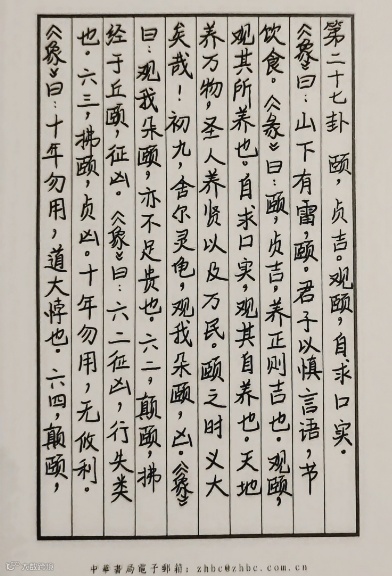 第二十七卦 颐，贞吉。观颐，自求口实。
《象》曰：山下有雷，颐。君子以慎言语，节
饮食。《彖》曰：颐，贞吉，养正则吉也。观颐，
观其所养也。自求口实，观其自养也。天地
养万物，圣人养贤以及万民。颐之时义大
矣哉！初九，舍尔灵龟，观我朵颐，凶。《象》
曰：观我朵颐，亦不足贵也。六二，颠颐，拂
经于丘颐，征凶。《象》曰：六二征凶，行失类
也。六三，拂颐，贞凶。十年勿用，无攸利。
《象》曰：十年勿用，道大悖也。六四，颠颐，
中華書局電子郵箱：zhbc@zhbc.com.cn